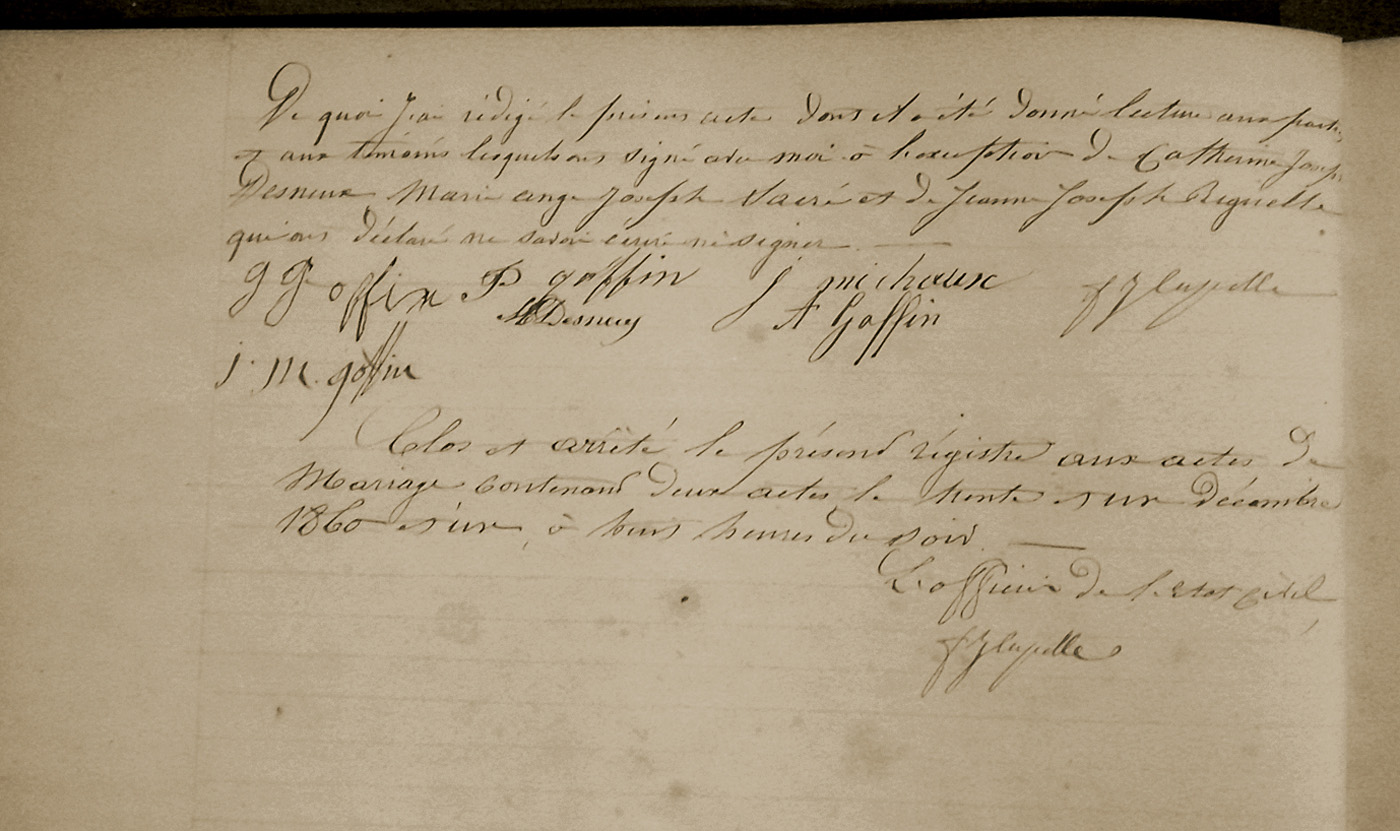 De quoi J'ai rédigé le présent acte dont il a été donné lecture aux parties
et aux témoins lesquels ont signé avec moi à l'exception de Catherine Joseph
Desneux Marie ange Joseph Sacré et de Jeanne Joseph Riguelle
qui ont déclaré ne savoir écrire ni signer.
g g goffin P goffin J michaux f J lapelle
M Desneux A Goffin
j. M. goffin
Clos et arrêté le présend régistre aux actes de
Mariage contenand deux actes, le trente et un décembre
1860 et un, à huit heures du soir.
L'officier de l'etat civil
f J lapelle